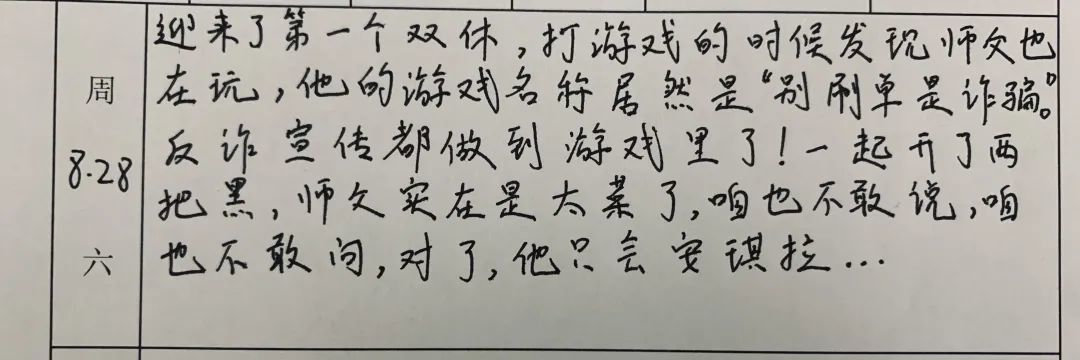 周
8.28
六
迎来了第一个双休，打游戏的时候发现师父也
在玩，他的游戏名称居然是“别刷单是诈骗。”
反诈宣传都做到游戏里了！一起开了两
把黑，师父实在是太菜了，咱也不敢说，咱
也不敢问，对了，他只会安琪拉...